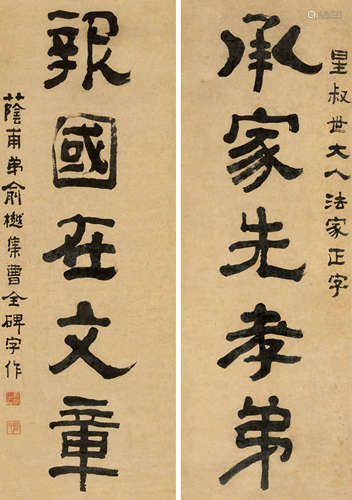 星叔世大人法家正字
承家先孝弟
報國在文章
蔭甫弟俞樾集曹全碑字作